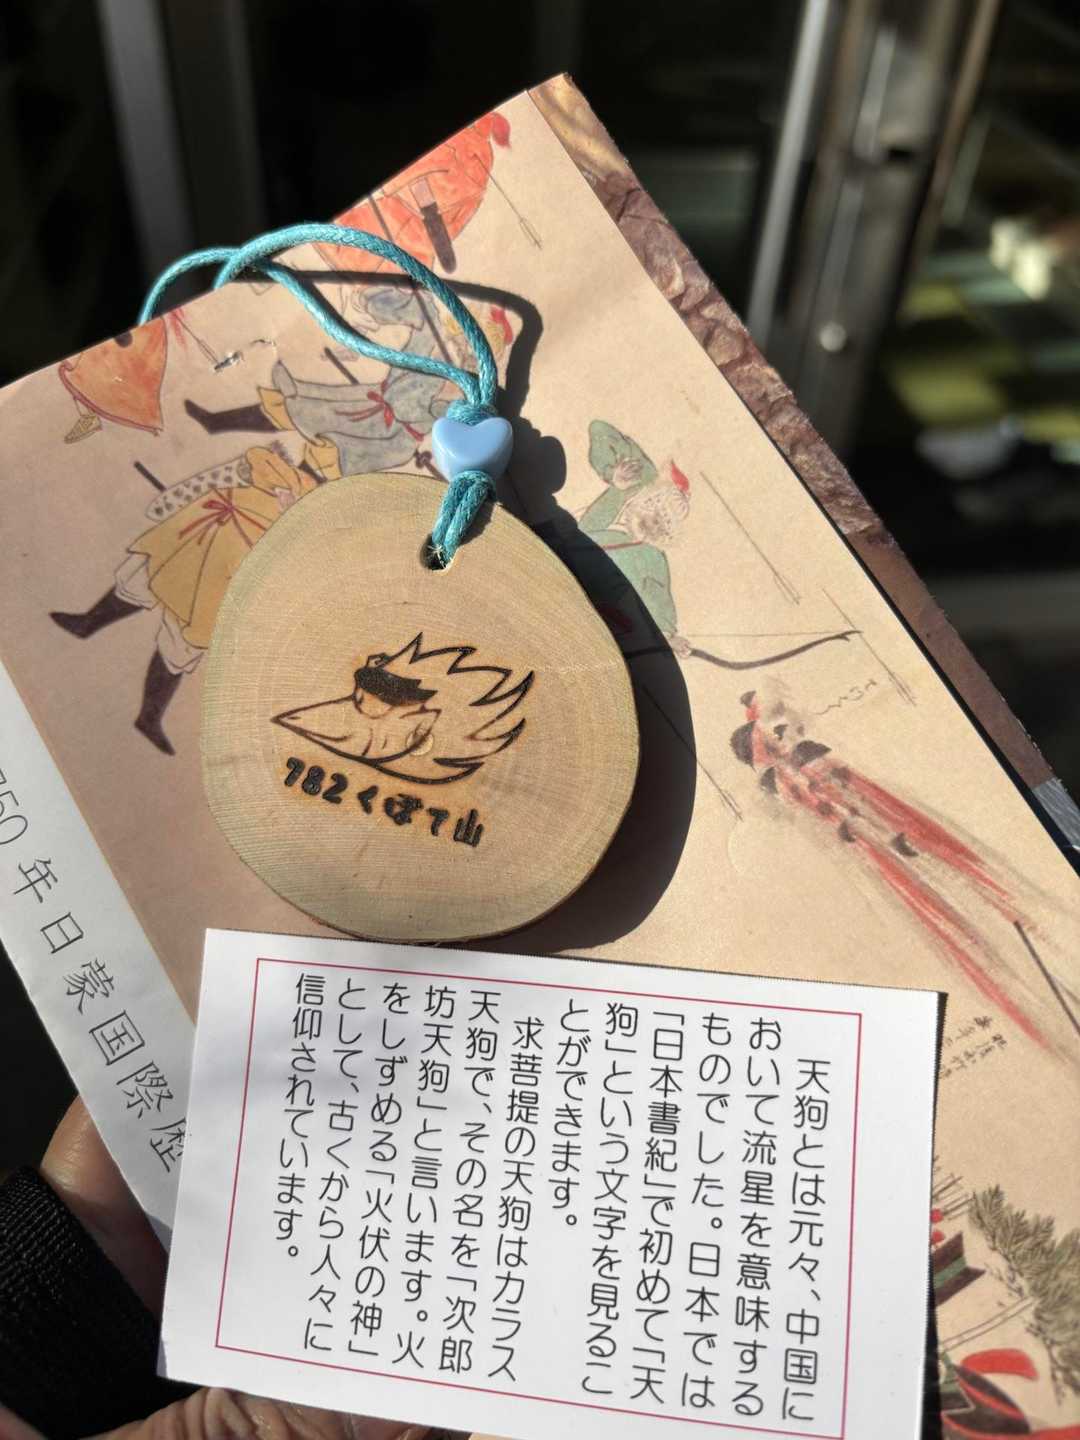 782くぼて山
750年日蒙国際歴
てつはう
天狗とは元々、中国に
おいて流星を意味する
ものでした。日本では
「日本書紀」で初めて「天
狗」という文字を見るこ
とができます。
求菩提の天狗はカラス
天狗で、その名を「次郎
坊天狗」と言います。火
をしずめる「火伏の神」
として、古くから人々に
信仰されています。